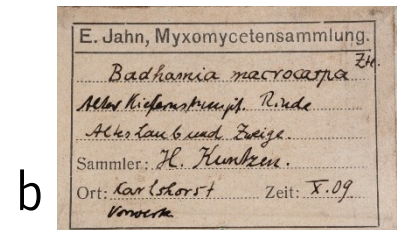 E. Jahn, Myxomycetensammlung.
Badhamia macrocarpa
Alter Kiefernstumpf. Rinde
Altes Laub und Zweige.
Sammler: H. Kuntzen.
Ort: Karlshorst Zeit: X.09
Vorwerk
b